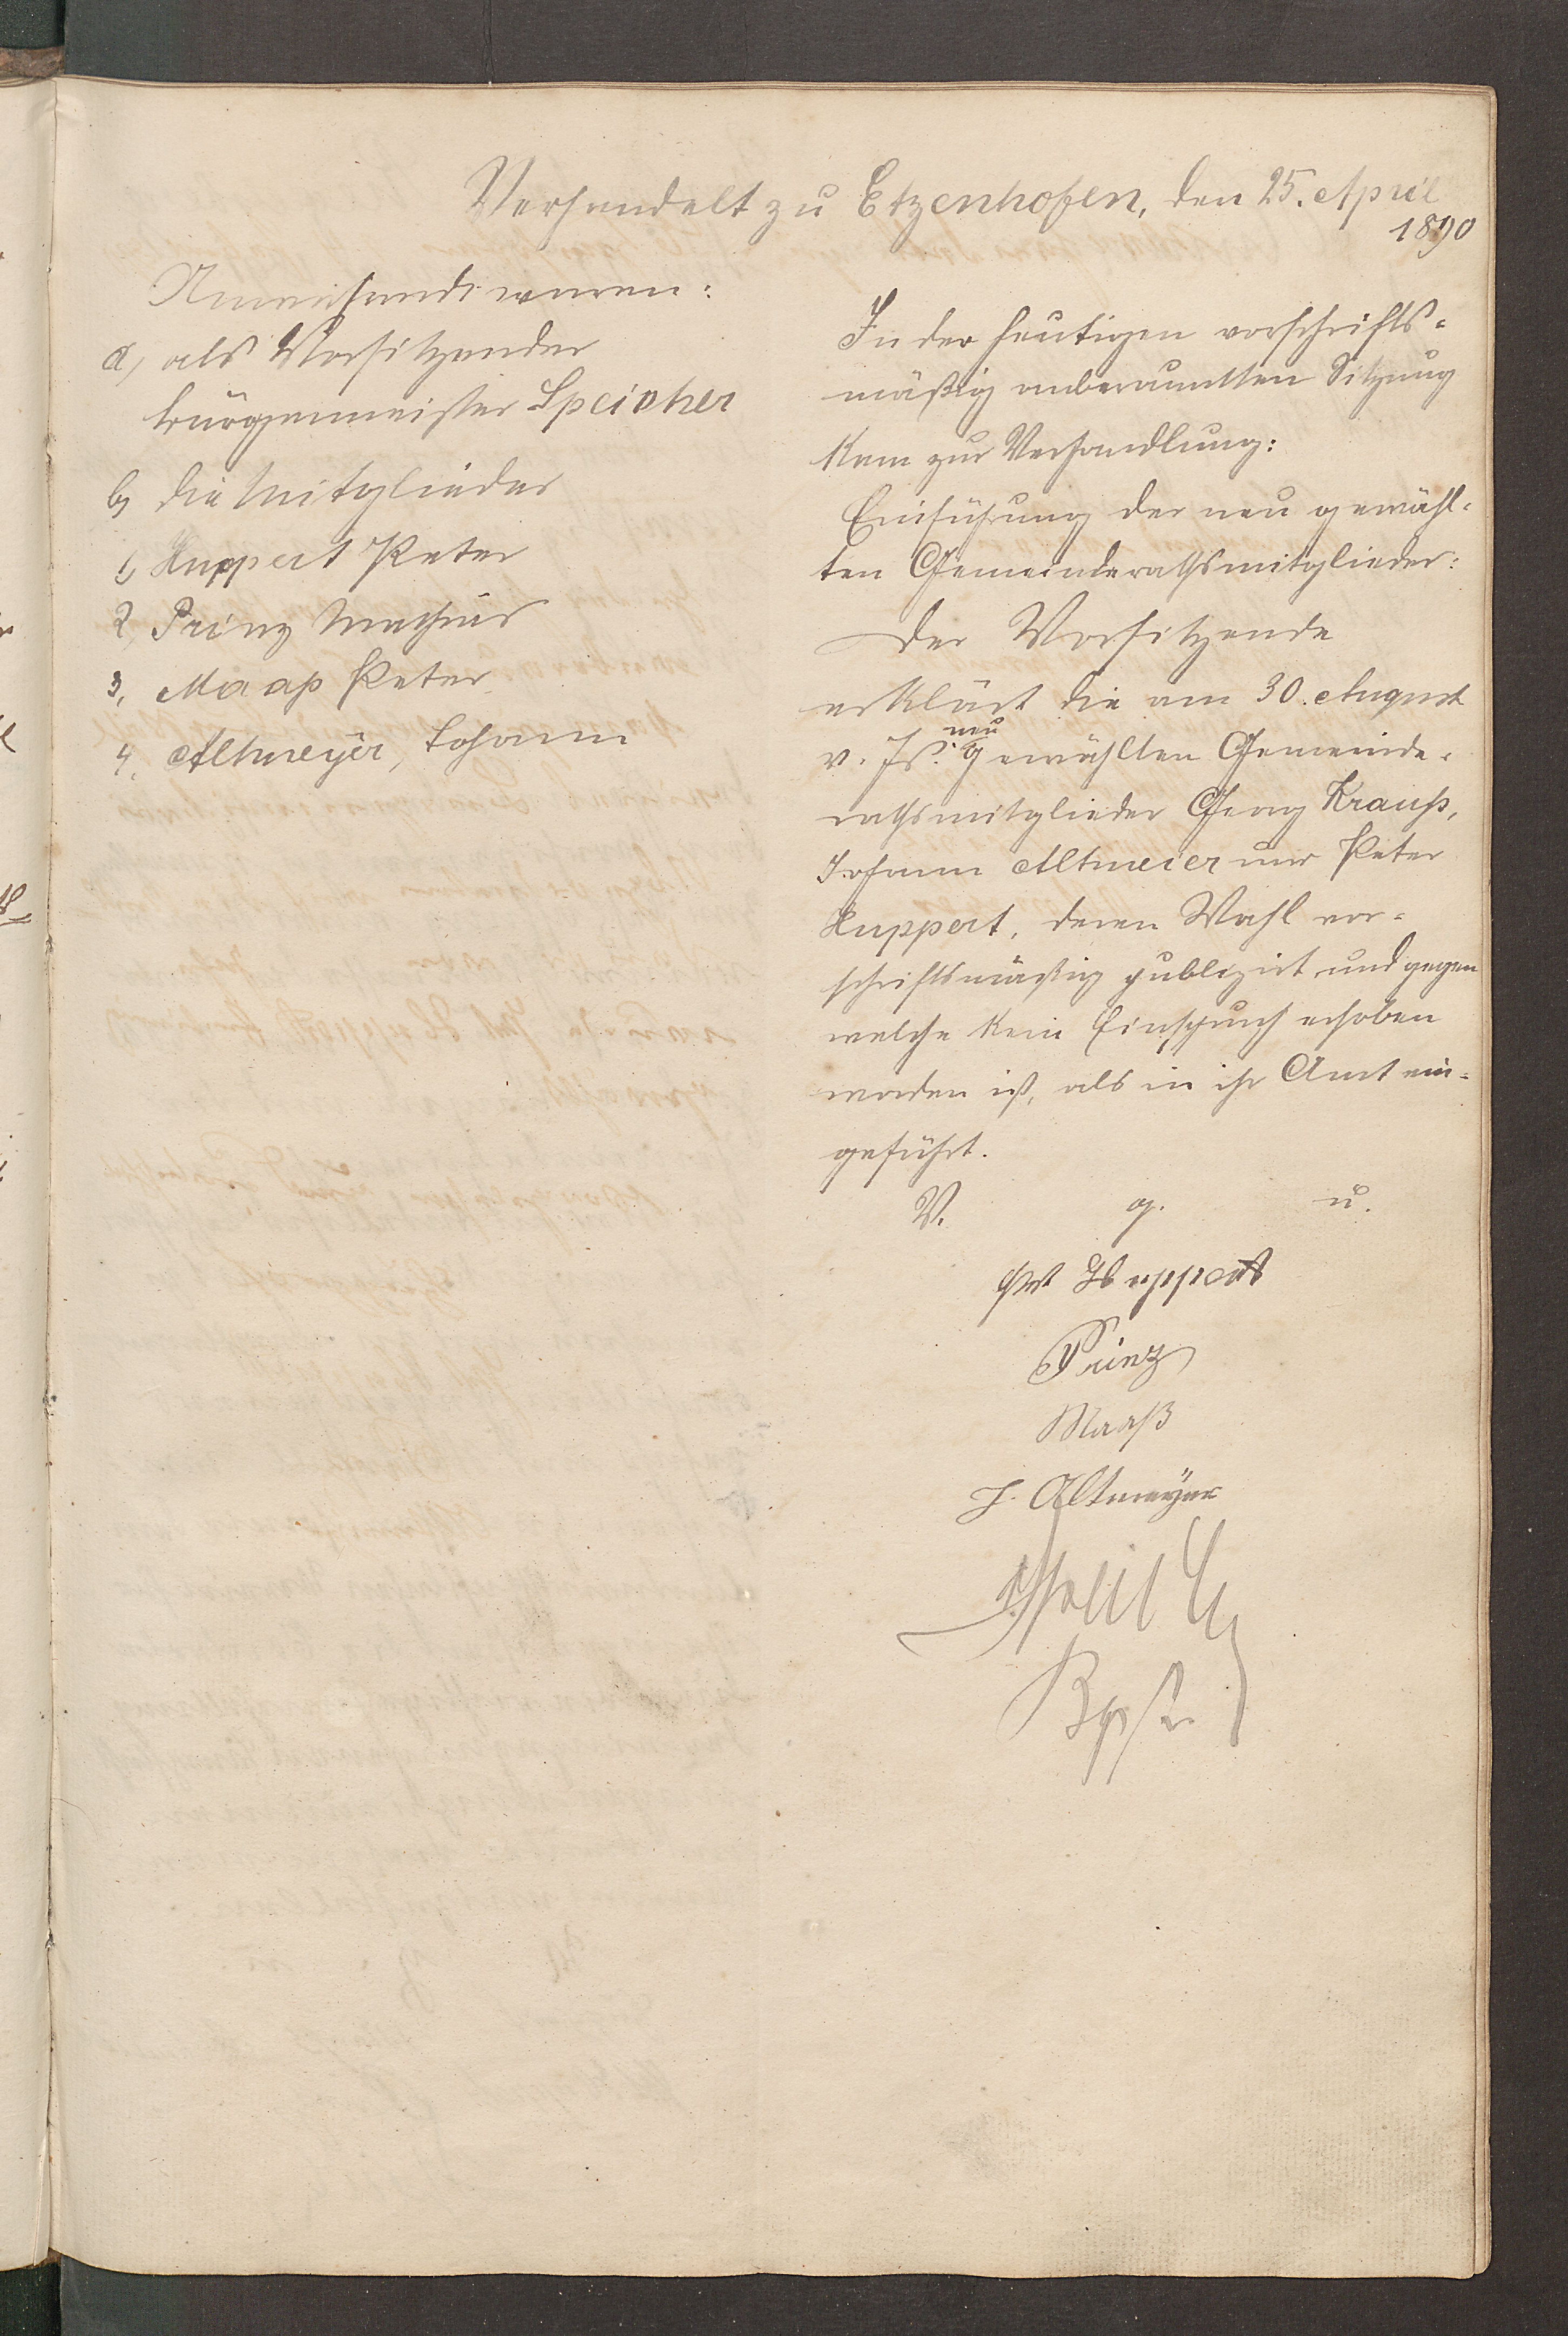 Verhandelt zu Etzenhofen, den 25. April
1890
Anwesende waren:
a, als Vorsitzender
Bürgermeister Speicher
b, die Mitglieder
1, Huppert Peter
2, Prinz Mathias
3, Maaß Peter
4, Altmeyer, Johann
In der heutigen vorschrifts-
mäßig anberaumten Sitzung
kam zur Verhandlung:
Einführung der neu gewähl-
ten Gemeinderathsmitglieder:
Der Vorsitzende
erklärt die am 30. August
v. Js. neu gewählten Gemeinde-
rathsmitglieder Georg Krauß,
Johann Altmeier und Peter
Huppert, deren Wahl vor-
schriftsmäßig publizirt und gegen
welche kein Einspruch erhoben
worden ist, als in ihr Amt ein-
geführt.
V. g. u.
Pet Huppert
Prinz
Maaß
J. Altmeyer